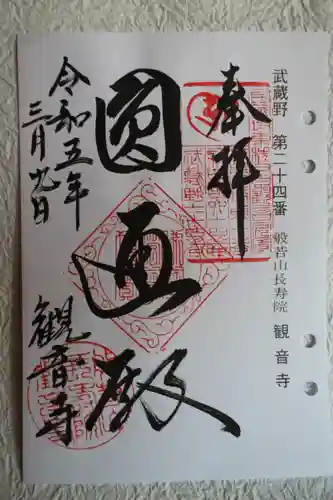 武蔵野 第二十四番 般若山長寿院 観音寺
奉拝
圓通殿
令和五年
三月九日
観音寺